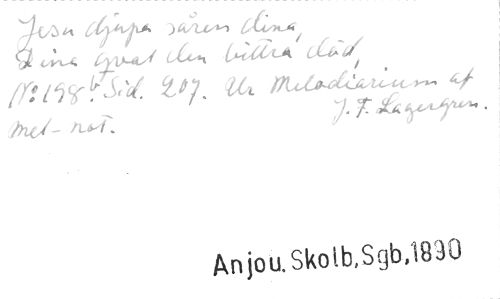 Jesu djupa såren dina,
Dina qval den bittra död,
No 198b. Sid. 207. Ur Melodiarium af
J. F. Lagergren.
met-not.
Anjou. Skolb, Sgb, 1890